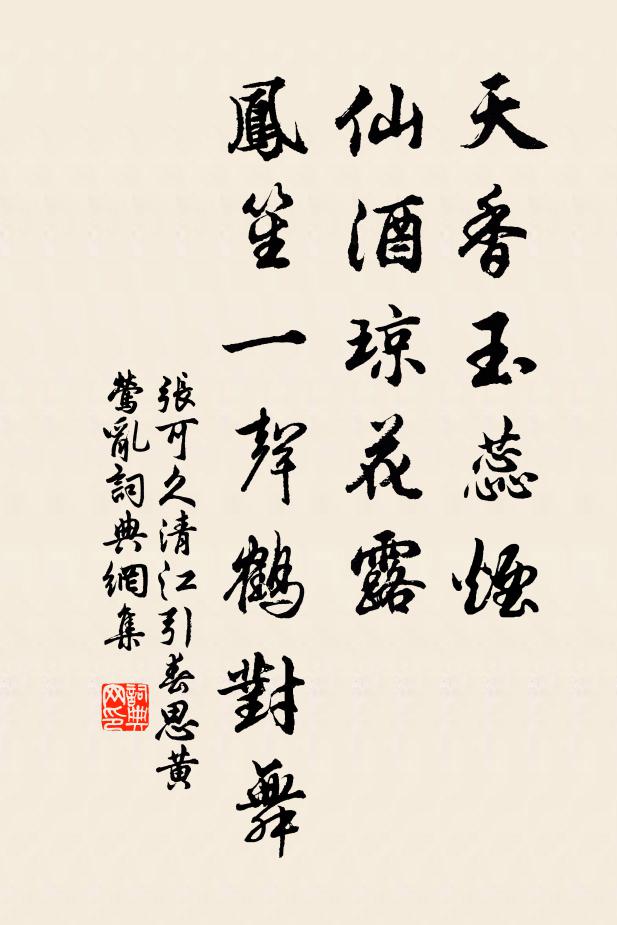 天香玉蕊煙
仙酒琼花露
鳳笙一聲鶴對舞
張可久清江引春思黄
鶯亂詞典網集
詞典
网印